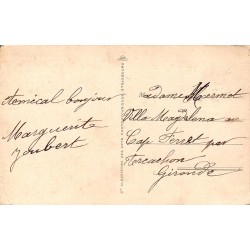 Amical bonjour
Marguerite
Joubert
Madame Mermet
Villa Magdalena au
Cap Ferret par
Arcachon
Gironde